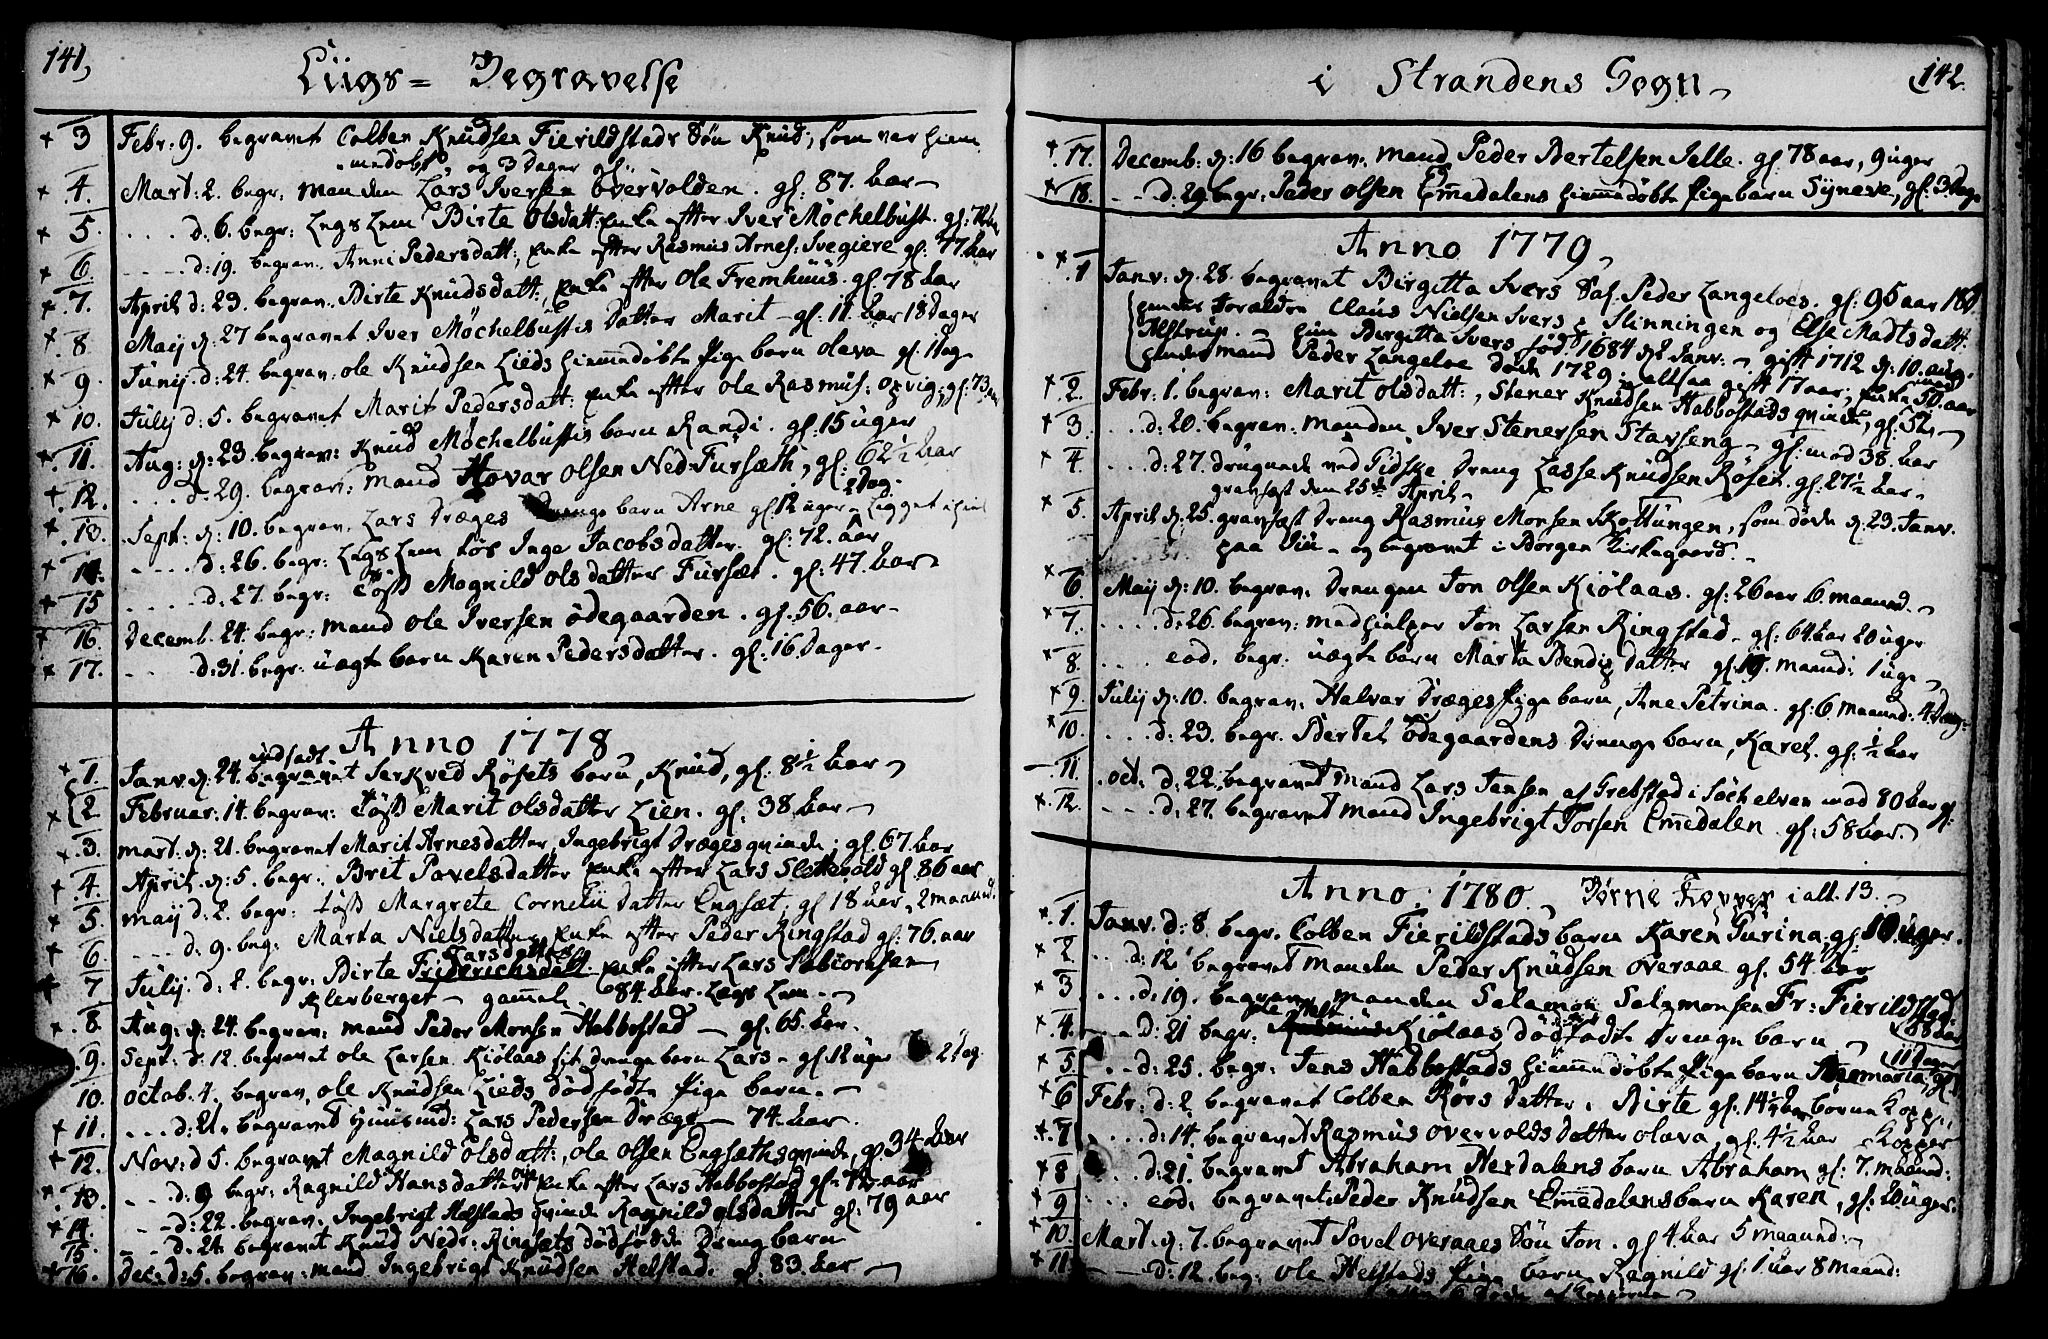 141,
Liigs= Begravelse
3 Febr: 9. begravet Colben Knudsen Fierildstads Søn Knud, som var hiem-
medøbt, og 3 Dager gl:
4. Mart: 2. begr: Manden Lars Iversen Overvolden. gl: 87. Aar
5. d: 6. begr: Legs Lem Birte Olsdatt: Enke efter Iver Møchelbust. gl: 72 Aar
6. d: 19. begrav. Anne Pedersdatt:, Enke efter Rasmus Arnes: Svegiere gl: 77 Aar
7. April d: 23. begrav. Birte Knudsdatt:, Enke efter Ole Fremhuus. gl: 78 Aar
8 Maij d: 27 begravet Iver Møchelbustes Datter Marit gl: 11. Aar 18 Dager
9. Junij. d: 24. begrav: Ole Knudsen Lieds hiemmedøbte Pige barn Oleva gl. 1 Dag
10. Julij d: 5. begravet Marit Pedersdatt: Enke efter Ole Rasmus: Opvig, gl: 73 Aar
11. Aug: d: 23. begrav: Knud Møchelbustes barn Randi. gl: 15 uger
12. d. 29. begrav: mand Hovar Olsen Ned-Fursæth, gl: 62 1/2 Aar
13. Sept: d: 10. begrav. Lars Dræges Drenge barn Arne gl. 12 uger 2 Dag. Ligget ihiel
14. d: 26. begr: Legs Lem Løs Inge Jacobsdatter. gl: 72. Aar
15 d: 27. begr: Løss Magnild Olsdatter Fursæt. gl: 47. Aar
16. Decemb. 24. begr: Mand Ole Iversen Ødegaarden. gl: 56. aar
17. d: 31. begr: uægte barn Karen Pedersdatter. gl: 16 Dager
Anno 1778
1. Janv. d: 24. begravet Serkved Røsets barn, Knud, gl: 8 1/2 Aar
2. Februar. 14. begrav: Løss Marit Olsdatter Lien. gl: 38. Aar
3. Mart: d: 21. begravet Marit Arnesdatter, Ingebrigt Dræges qvinde; gl: 67. Aar
4. April d: 5. begr: Brit Povelsdatter Enke efter Lars Slettevold gl. 86 aar
5 Maij d: 2. begr: Løss Margrete Cornelii Datter Engsæt, gl 18 aar, 2 maaned.
6. d. 9. beg: Marta Nielsdatter Enke efter Peder Ringstad gl: 76. aar
7 Julij. d: 2. begr: Birte Larsdatter Enke efter Lars Tobiornsen
Klerberget gamel 84 Aar. Legs Lem.
8. Aug: d: 24. begrav: mand Peder Monsen Habbostad gl: 65. Aar.
9. Sept: d: 12. begravet Ole Larsen Kiølaas sit Drenge barn Lars gl. 12 uger 2 Dag
10. Octob. 4. begrav. Ole Knudsen Lieds dødfødte Pige barn.
11. d: 21. begravet Huusmd: Lars Pedersen Dræge 74. Aar.
12. Nov: d 5. begravet Magnild Olsdatt:, Ole Olsen Engsæths qvinde, gl. 34 Aar
13. d. 9 begr: Ragnild Hansdatter Enke efter Lars Habbostad gl: aar
14. d: 22. begrav. Ingebrigt Helstads qvinde Ragnild Olsdatter gl: 79 aar
15. d. 24. begravet Knud Nedr: Ringsæts dødfødde Dreng barn
16. Dec: d: 5. begrav: mand Ingebrigt Knudsen Helstad. gl: 83. Aar
i Strandens Sogn
142
17. Decemb: d: 16 begrav. mand Peder Bertelsen Jelle. gl 78 aar, 9 uger
18. d: 29. begr: Peder Olsen Emedalens hiemmedøbte Pige barn Syneve, gl: 3 Dage
Anno 1779
1 Janv: d. 28. begravet Birgitta Ivers Sal. Peder Langeloes. gl: 95 aar
hendes Foraldre Claus Nielsen Ivers paa Slinningen og Else Madtsdatt:
Alstrup. hun Birgitta Ivers fød 1684 d 2 Janv. gift 1712 d: 10. aug.
hendes mand Peder Langeloe døde 1729. altsaa gift 17 aar, Enke 50. aar
2. Febr: 1. begrav: Marit Olsdatt:, Stener Knudsen Habbostads qvinde, gl: 52.
3. d: 20. begrav: manden Iver Stenersen Stavseng gl: mod 38. Aar
4. d: 27. druknede ved Fidske Dreng Lasse Knudsen Røset. gl: 27 1/2 Aar
gravfæst den 25de April
5. April d: 25. gravfæst Dreng Rasmus Monsen Skottungen, som døde d: 23. Janv.
paa og begravet i Borgen Kirkegaard.
6. Maij d: 10. begrav. Drengen Jon Olsen Kiölaas. gl: 26 aar 6 maaned.
7. d: 26. begrav: medhielper Jon Larsen Ringstad gl: 64 Aar 20 uger
8. eod. begr: uægte barn Marta Bendix Datter gl: 19. maaned: 1 uge
9. Julij d: 10. begrav. Halvar Dræges Pige barn, Ane Petrina. gl: 6. maaned: 4 Dag:
10. d: 23. begr. Bertel Ødegaardens Drenge barn, Karel. gl: 1/2 Aar
11. Oct. d: 22. begravet mand Lars Jensen af Grebstad i Søchelven mod 80 Aar gl:
12. d: 27. begravet mand Ingebrigt Torsen Emedalen gl: 58 Aar.
Anno 1780 Børne Kopper i alt. 13.
1. Janv. d: 8. begr. Colben Fierildstads barn Karen Gurina, gl. 10 uger.
2. d: 12 begravet Manden Peder Knudsen Overaae gl. 54. Aar
3 d: 19. begrav. manden Salamon Salamonsen Fr: Fierildstad
88 Aar
4. d: 21 begr: Kiølaas dødfødte Drenge barn
5. d: 25. begr: Jens Habbostads hiemmedøbte Pige barn
11 Dager
6 Febr: d: 2 begravet Colben Rørs Datter, Birte gl. børne Kopp:
7 d: 14. begravet Rasmus Overvolds Datter Olava, gl: 4 1/2 Aar Kopper
8 d: 21. begravet Abraham Hexdalens barn Abraham gl: 7. maaned:
9 eod. begravet Peder Knudsen Emedalens barn Karen, gl: 20 uger.
10. Mart. d: 7. begravet Povel Overaaes Søn Jon. gl 4. Aar 5 maaned:
11 d: 12. beg: Ole Helstads Pige barn Ragnild gl: 1 aar 8 maaned: